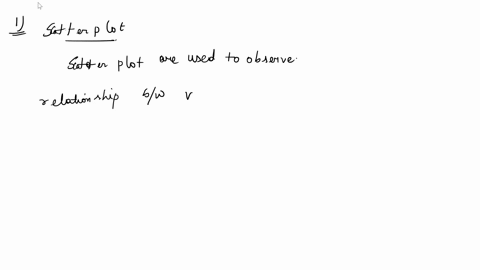 1) Scatter plot
Scatter plot are used to observe
relationship b/w v